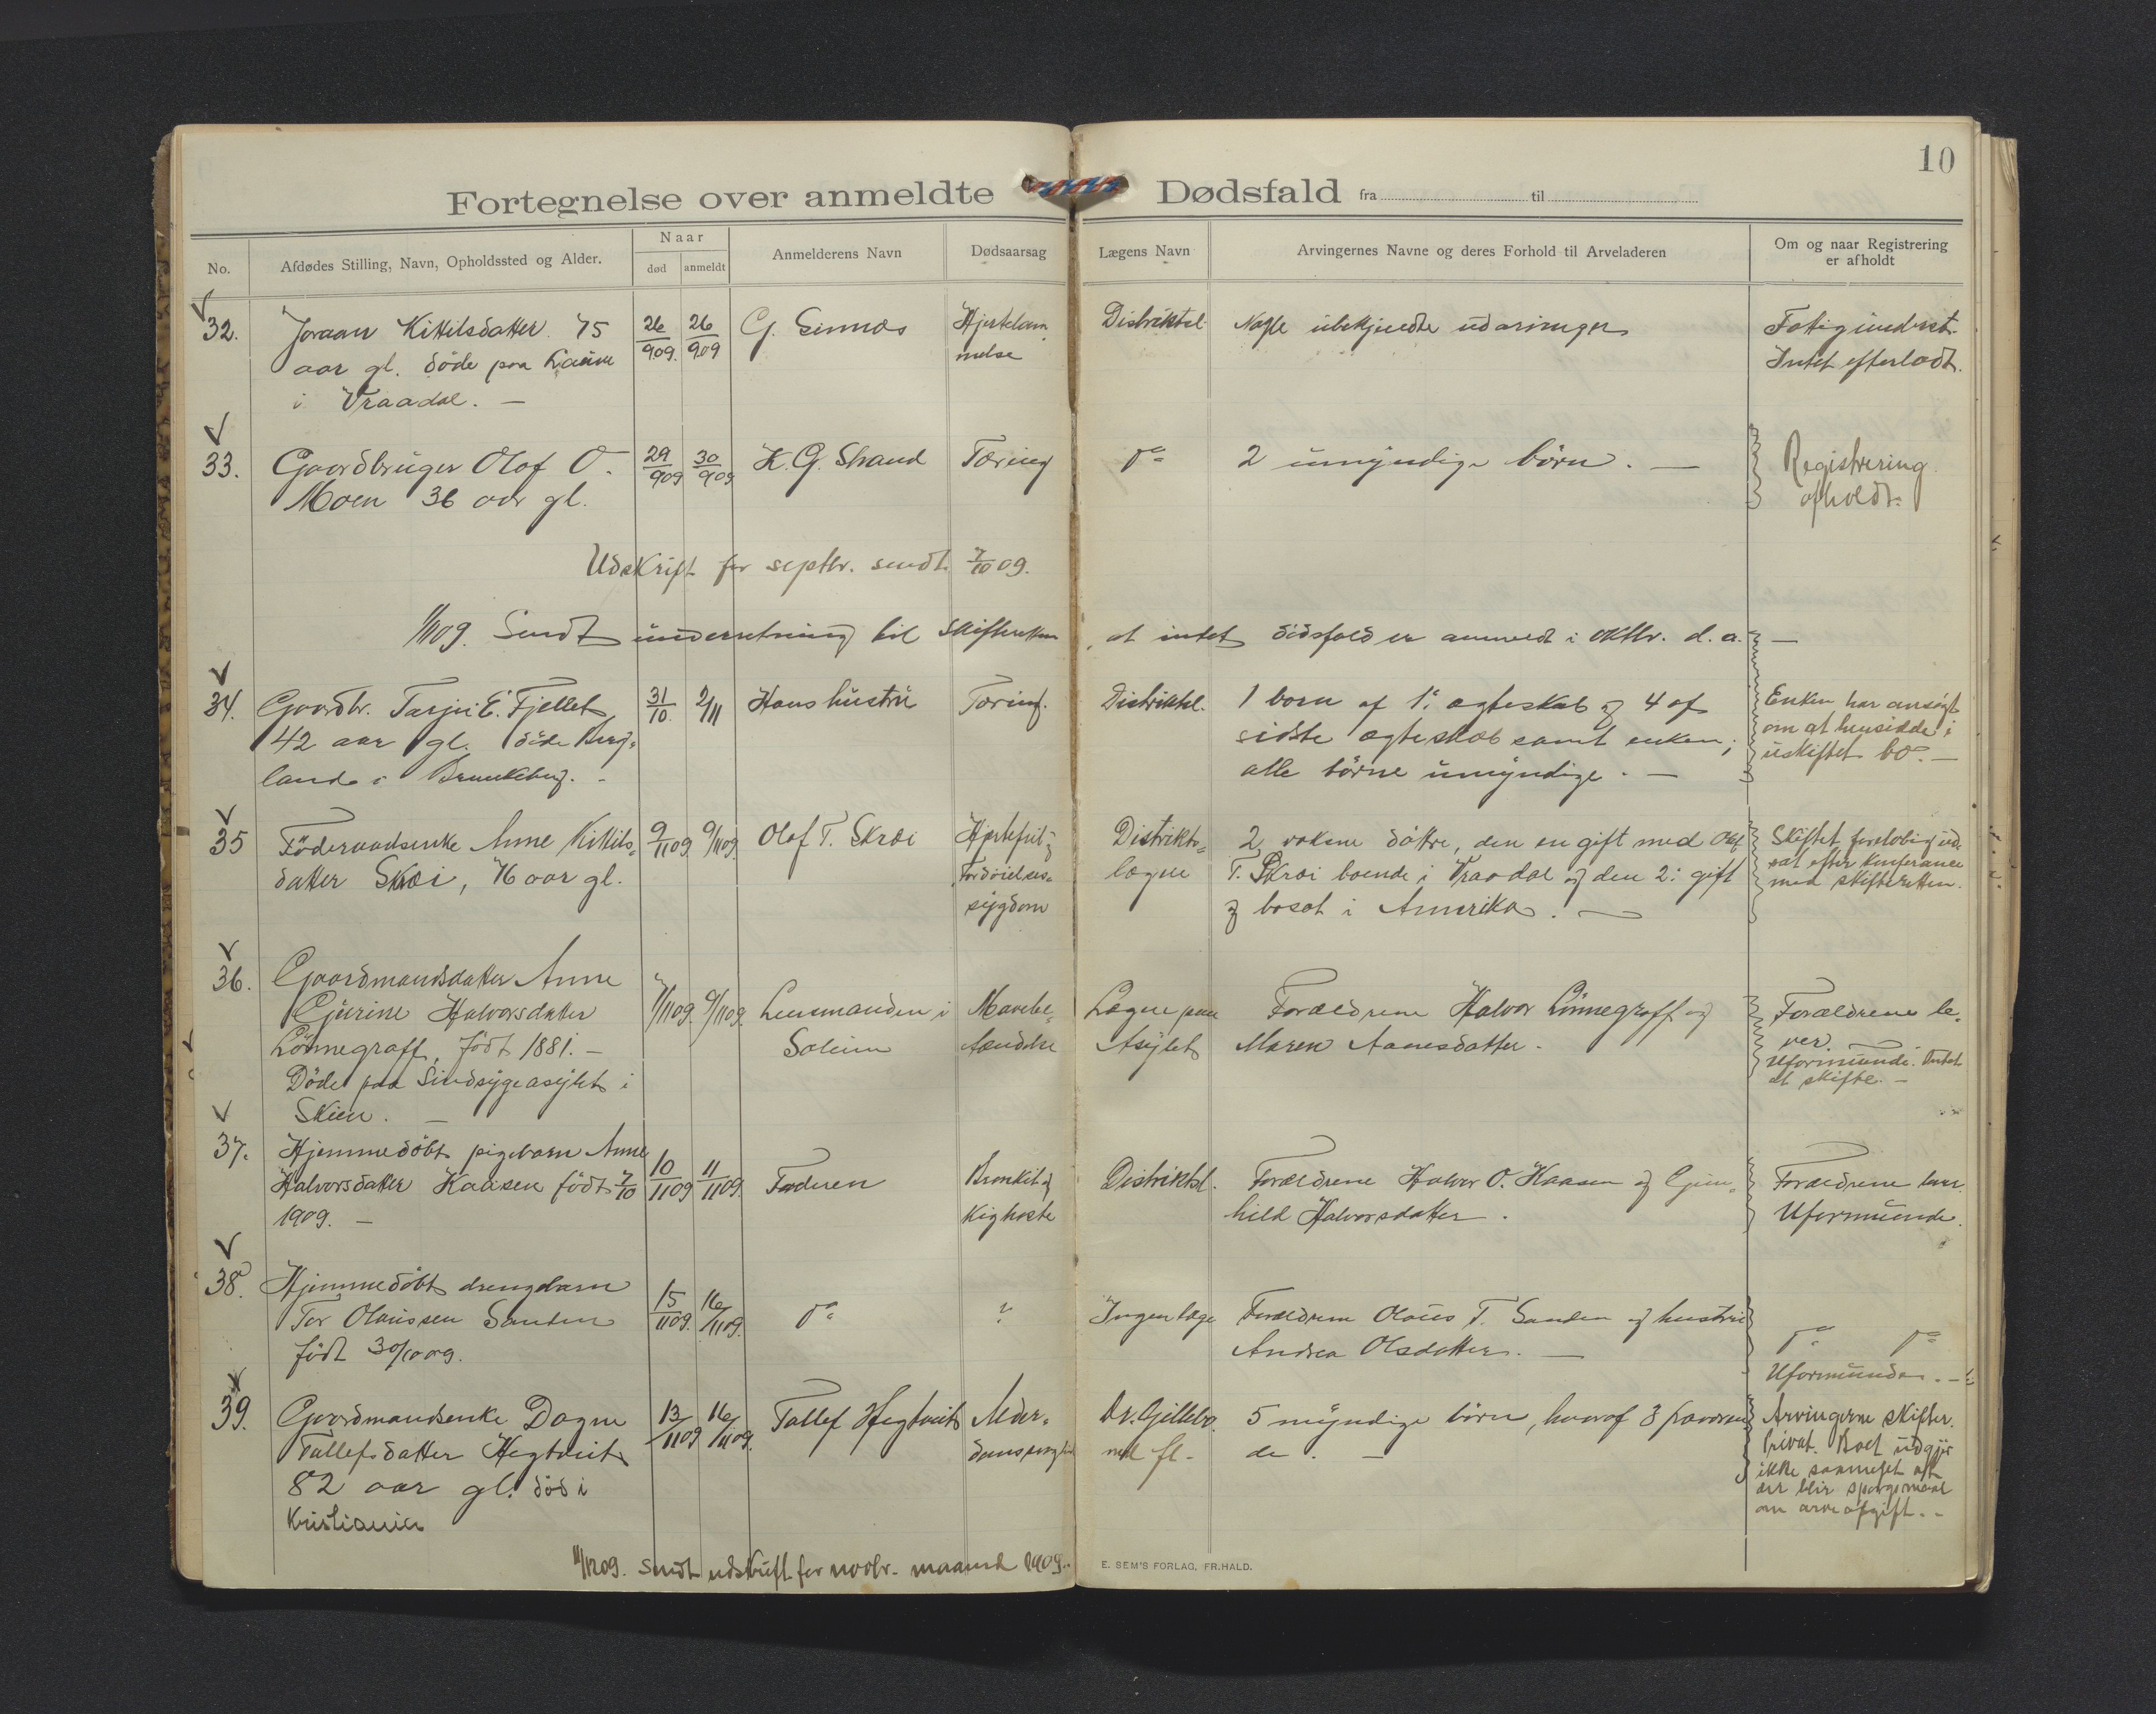 10
Fortegnelse over anmeldte Dødsfald fra til
No.
Afdødes Stilling, Navn, Opholdssted og Alder.
Naar
død anmeldt
Anmelderens Navn
Dødsaarsag
Lægens Navn
Arvingernes Navne og deres Forhold til Arveladeren
Om og naar Registrering
er afholdt
32.
Joraan Kittilsdatter 75
aar gl. døde paa
i Vraadal. —
26/909. 26/909
G.
Hjertelam
melse
Distriktsl.
Nogle ubekjendte udarvinger
Fatigunderst.
Intet efterladt.
33.
Gaardbruger Olaf O.
Moen 36 aar gl.
29/909 30/909
K. G. Strand
Tæring
do
2 umyndige börn. —
Registrering
afholdt.
Udskrift for septbr. sendt 7/10 09.
1/1109. Sendt underretning til skifteretten, at intet dödsfald er anmeldt i oktbr. d. a. —
34.
Gaardbr. Tarjei E. Fjellet
42 aar gl. döde Berg-
land i Brunkeberg. -
31/10. 2/11
Hans hustru
Tæring.
Distriktsl.
1 barn af 1. ægteskab og 4 af
sidste ægteskab samt enken;
alle börne umyndige. —
Enken har ansøgt
om at hensidde i
uskiftet bo. —
35
Föderaadsenke Anne Kittils=
datter Skræi, 76 aar gl.
9/1109. 9/1109.
Olaf T. Skræi
Hjertefeil og
Fordöielses=
sygdom
Distrikts=
læge
2 voksne döttre, den en gift med Olaf
T. Skræi boende i Vraadal og den 2: gift
og bosat i Amerika. —
Skiftet foreløbig ud
sat efter konferance
med skifteretten.
36.
Gaardmandsdatter Anne
Gurine Halvorsdatter
Lönnegraff, født 1881. —
Döde paa Sindsygeasylet i
Skien. —
7/1109. 9/1109.
Lensmanden i
Solum
Mavebe=
tændelse
Læge paa
Asylet
Forældrene Halvor Lönnegraff og
Maren Aanesdatter -
Forældrene le-
ver. —
Uformuende. Intet
at skifte. —
37.
Hjemmedöbt pigebarn Anne
Halvorsdatter Kaasen født 7/10
1909. —
10/1109 11/1109
Faderen
Bronkit og
Kighoste
Distriktsl.
Forældrene Halvor O. Kaasen og Gun-
hild Halvorsdatter.
Forældrene lever.
Uformuende.
38.
Hjemmedöbt drengebarn
Tor Olaussen Sanden
født 30/10 09.
15/1109. 16/1109.
do
?
Ingen læge
Forældrene Olaus T. Sanden og hustru
Andrea Olsdatter. —
do do
Uformuende. —
39.
Gaardmandsenke Dagne
Tallefsdatter Hegtveit
82 aar gl. död i
Kristiania
13/1109 16/1109.
Tallef Hegtveit
Alder-
domssvaghed
Dr. Gjillebo
5 myndige börn, hvoraf 3 fraværen
de. —
Arvingerne skifter
Privat. Boet udgjør
ikke saameget at
der blir spørgsmaal
om arveafgift. -
11/1209. Sendt udskrift for novbr. maaned 1909.
E. SEM'S FORLAG, FR.HALD.